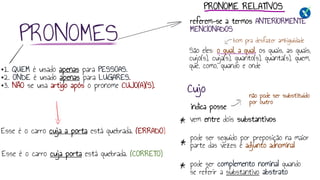 PRONOMES
*1. QUEM é usado apenas para PESSOAS.
*2. ONDE é usado apenas para LUGARES.
*3. NÃO se usa artigo após o pronome CUJO(A)(S).
Esse é o carro cuja a porta está quebrada. (ERRADO)
Esse é o carro cuja porta está quebrada. (CORRETO)
PRONOME RELATIVOS
referem-se a termos ANTERIORMENTE
MENCIONADOS
bom pra desfazer ambiguidade
São eles: o qual, a qual, os quais, as quais,
cujo(s), cuja(s), quanto(s), quanta(s), quem,
que, como, quando e onde
Cujo
indica posse
não pode ser substituído
por outro
* vem entre dois substantivos
* pode ser seguido por preposição na maior
parte das vezes é adjunto adnominal
* pode ser complemento nominal quando
se referir a substantivo abstrato